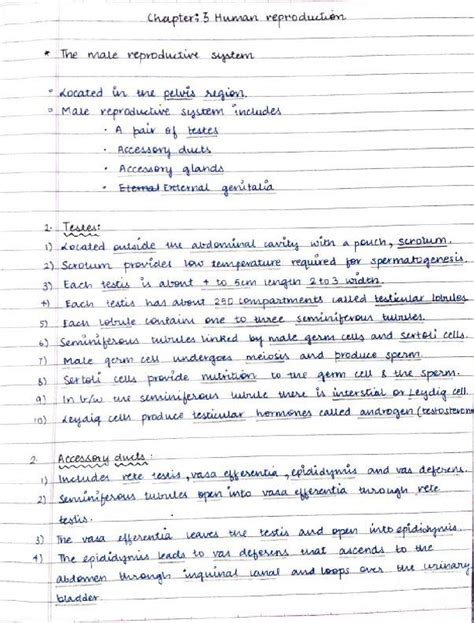 Chapter: 3 Human reproduction
* The male reproductive system
° Located in the pelvis region.
° Male reproductive system includes
• A pair of testes
• Accessory ducts
• Accessory glands
• Eternal External genitalia
2. Testes:
1) Located outside the abdominal cavity with a pouch, scrotum.
2) Scrotum provides low temperature required for spermatogenesis.
3) Each testis is about 4 to 5cm length 2 to 3 width.
4) Each testis has about 250 compartments called testicular lobules
5) Each lobule contains one to three seminiferous tubules.
6) Seminiferous tubules linked by male germ cells and sertoli cells.
7) Male germ cell undergoes meiosis and produce sperm.
8) Sertoli cells provide nutrition to the germ cell & the sperm.
9) In b/w the seminiferous tubule there is interstial or Leydig cell.
10) Leydig cells produce testicular hormones called androgen (testosterone
2. Accessory ducts:
1) Includes rete testis, vasa efferentia, epididymis and vas deferens.
2) Seminiferous tubules open into vasa efferentia through rete
testis.
3) The vasa efferentia leaves the testis and open into epididymis.
4) The epididymis leads to vas deferens that ascends to the
abdomen through inguinal canal and loops over the urinary
bladder.